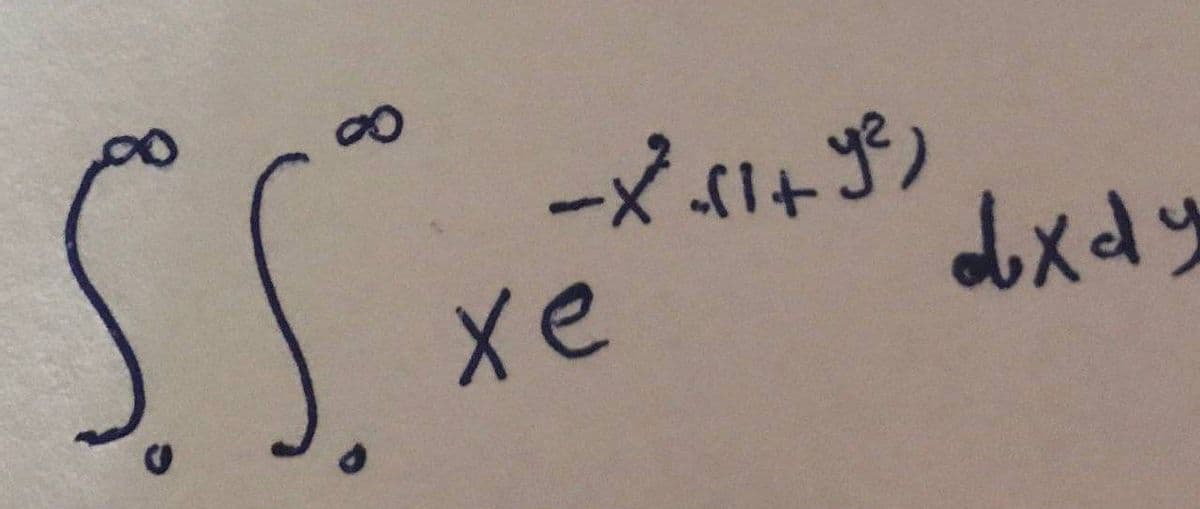 ∫₀^∞ ∫₀^∞ x e^{-x² .(1+y²)} dx dy